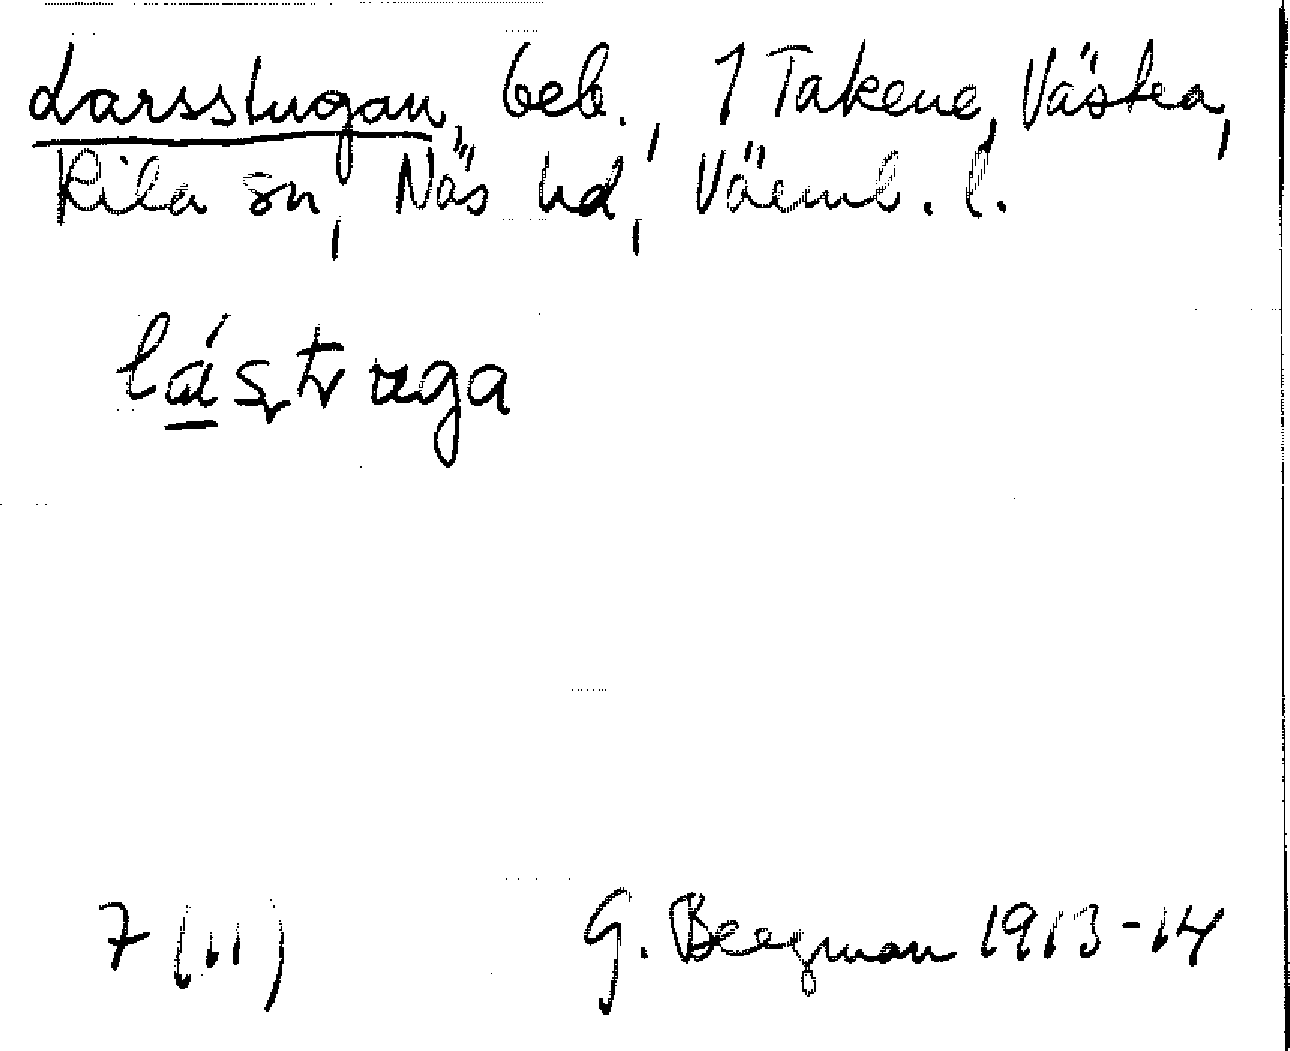 Larsstugan, beb., 1 Takene, Västra,
Kila sn, Näs hd, Värml. l.
lástuga
7 (11)
G. Bergman 1913-14